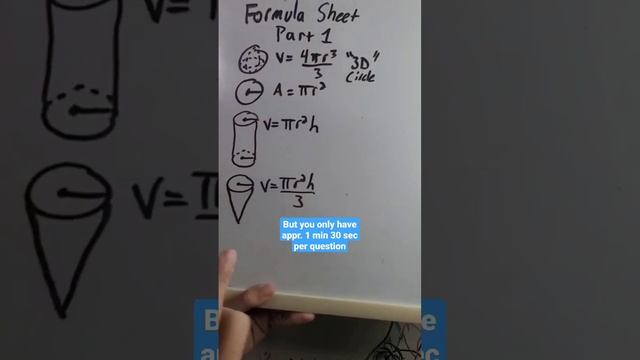 Formula Sheet
Part 1
V = 4πr³/3 "3D" Circle
A = πr²
V = πr²h
V = πr²h/3
But you only have
appr. 1 min 30 sec
per question